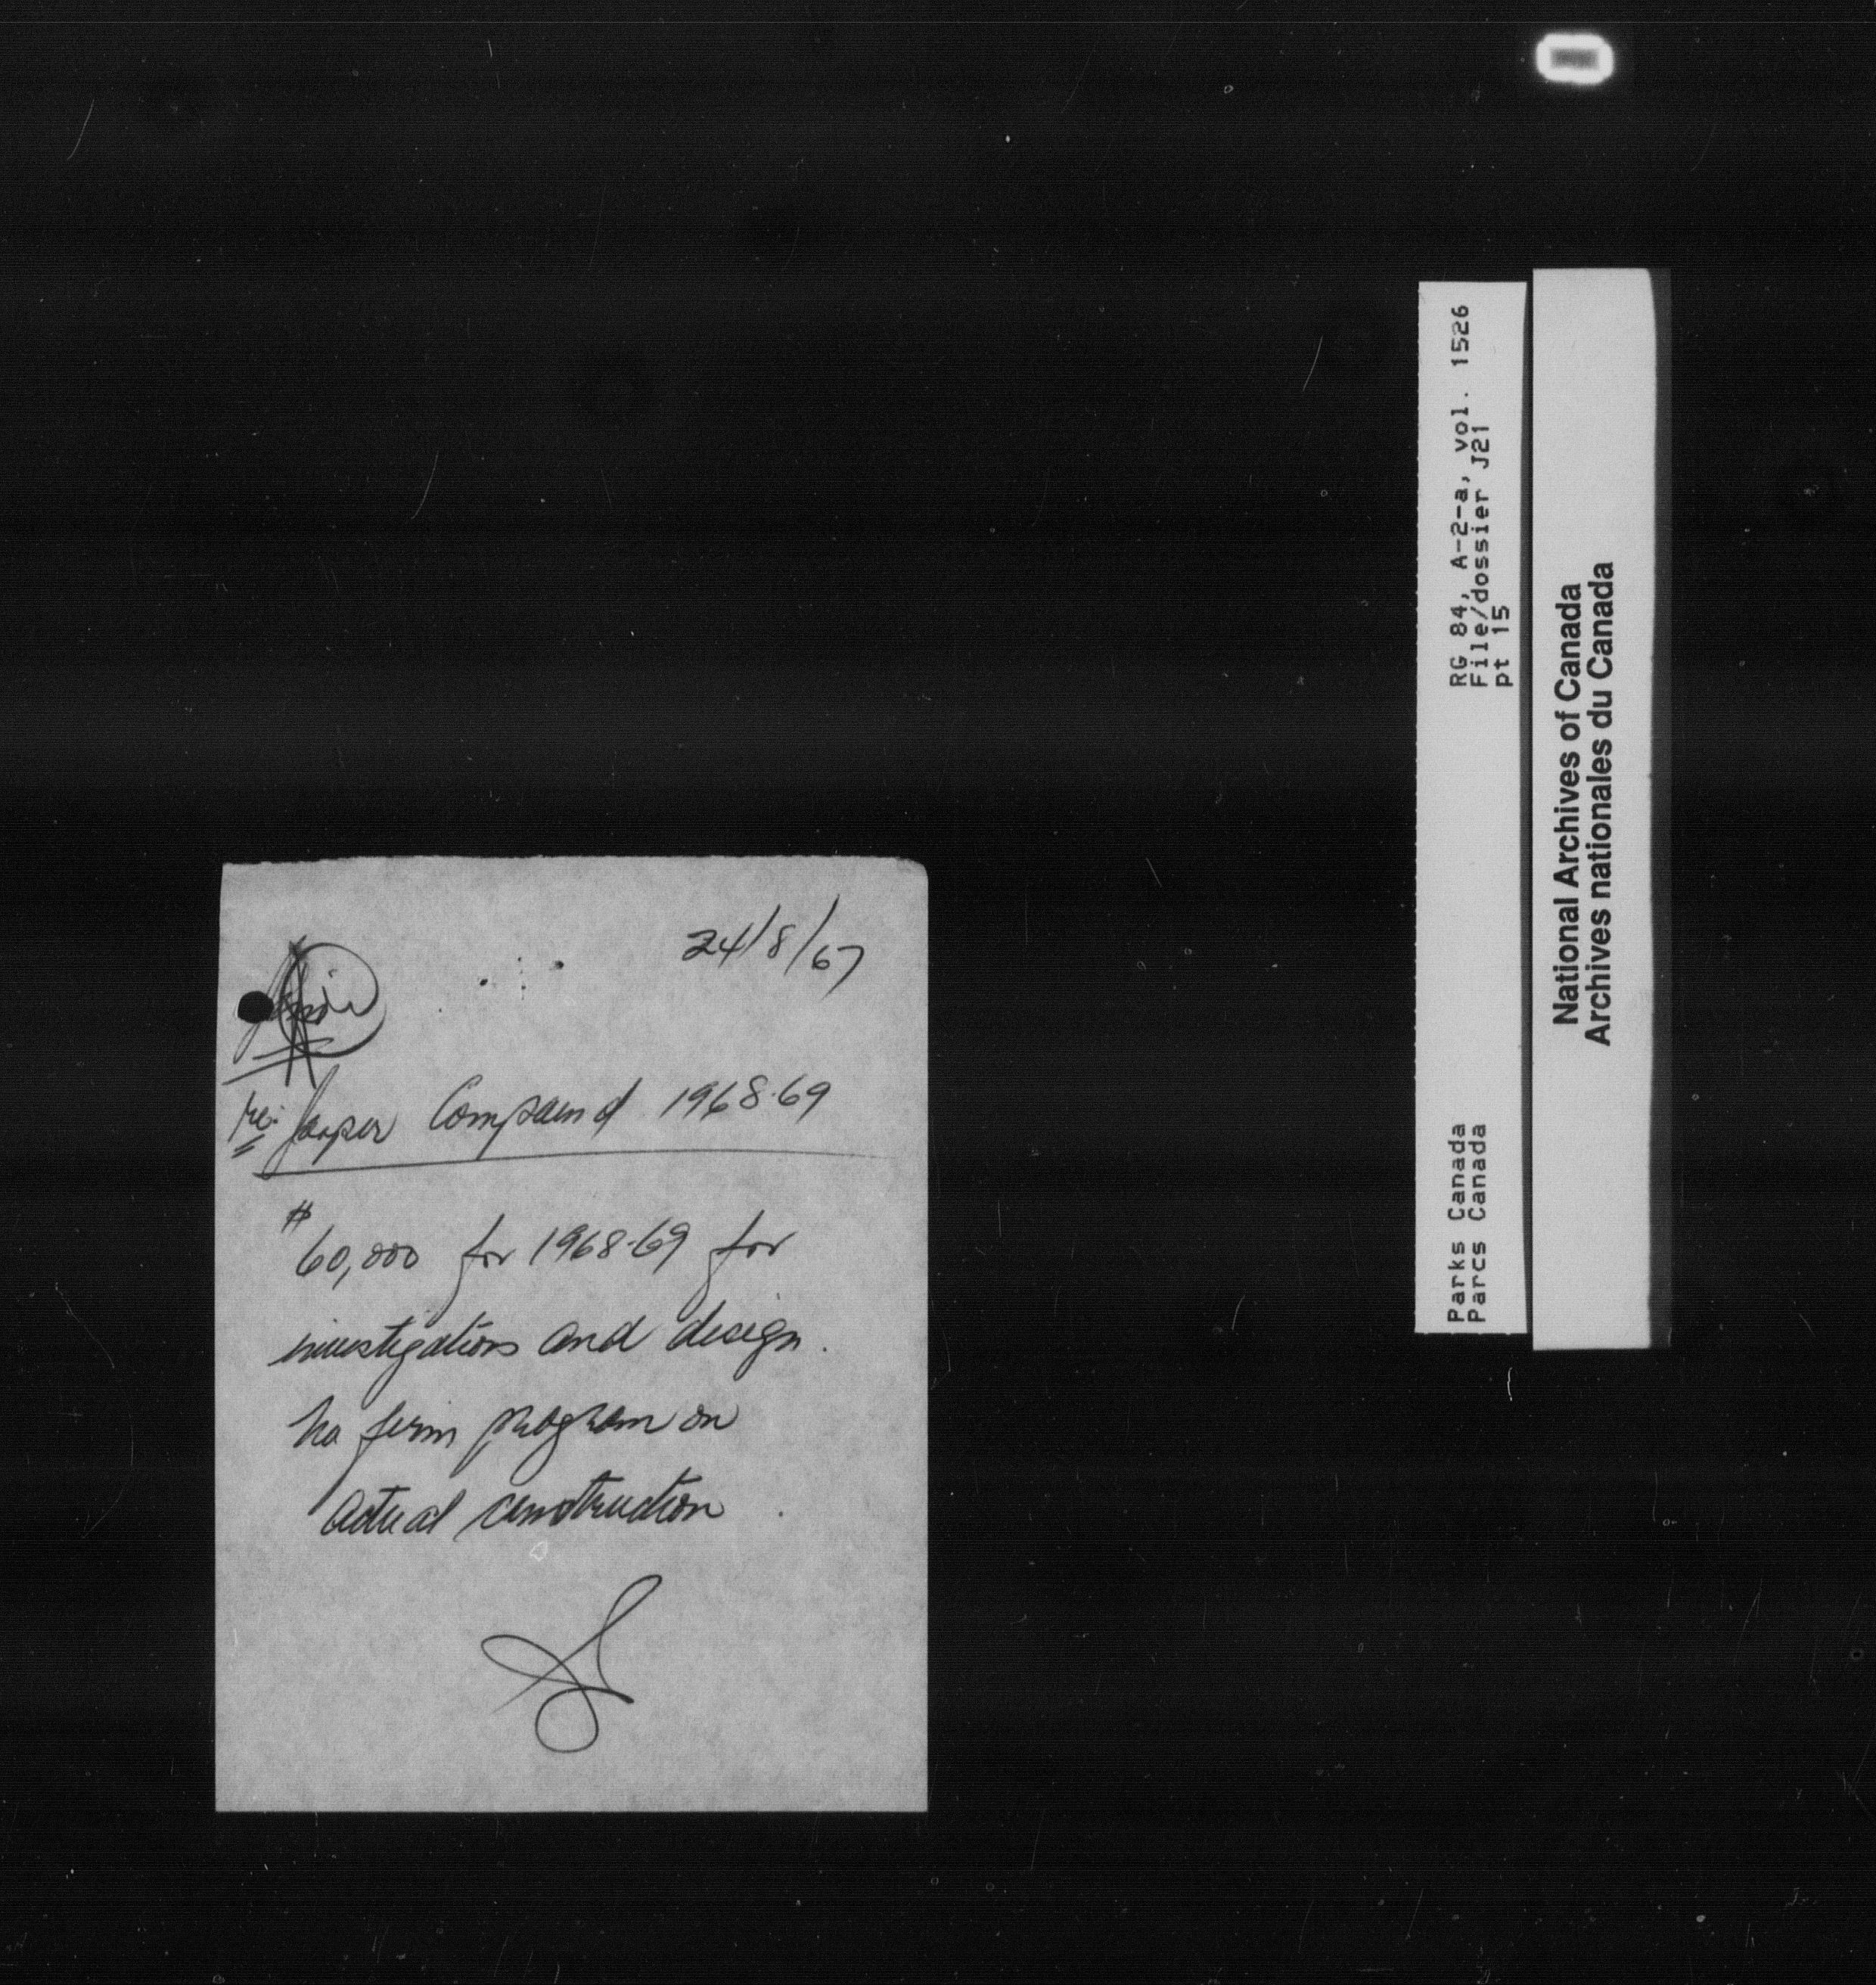 24/8/67
re: Jasper Compound 1968-69
$60,000 for 1968-69 for
investigations and design.
No firm program on
actual construction
RG 84, A-2-a, vol. 1526
File/dossier J21
pt 15
Parks Canada
Parcs Canada
National Archives of Canada
Archives nationales du Canada